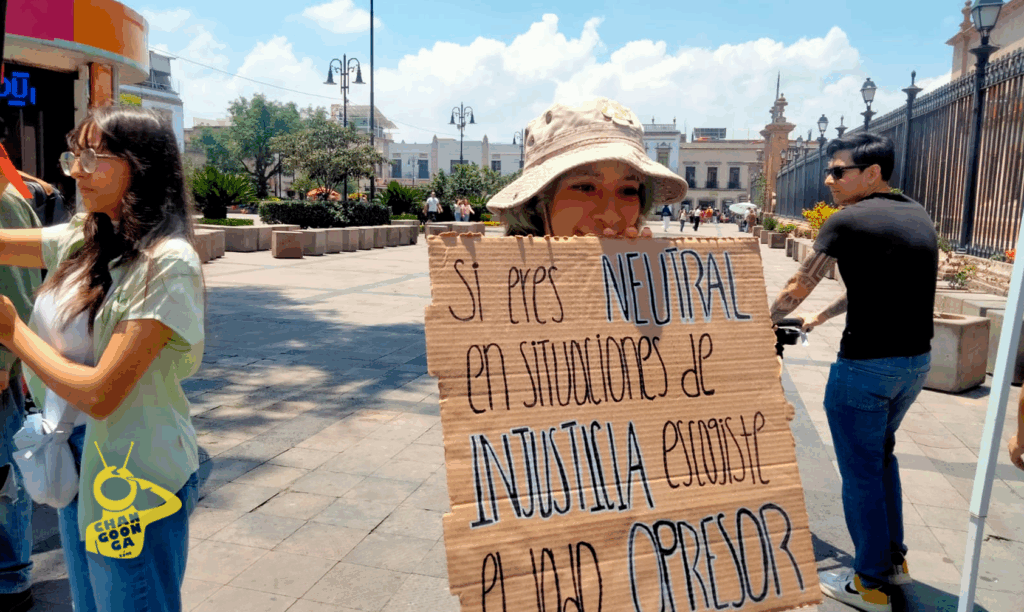 Si eres NEUTRAL
en situaciones de
INJUSTICIA escogiste
el lado OPRESOR
CHAN
GOON
GA
.com